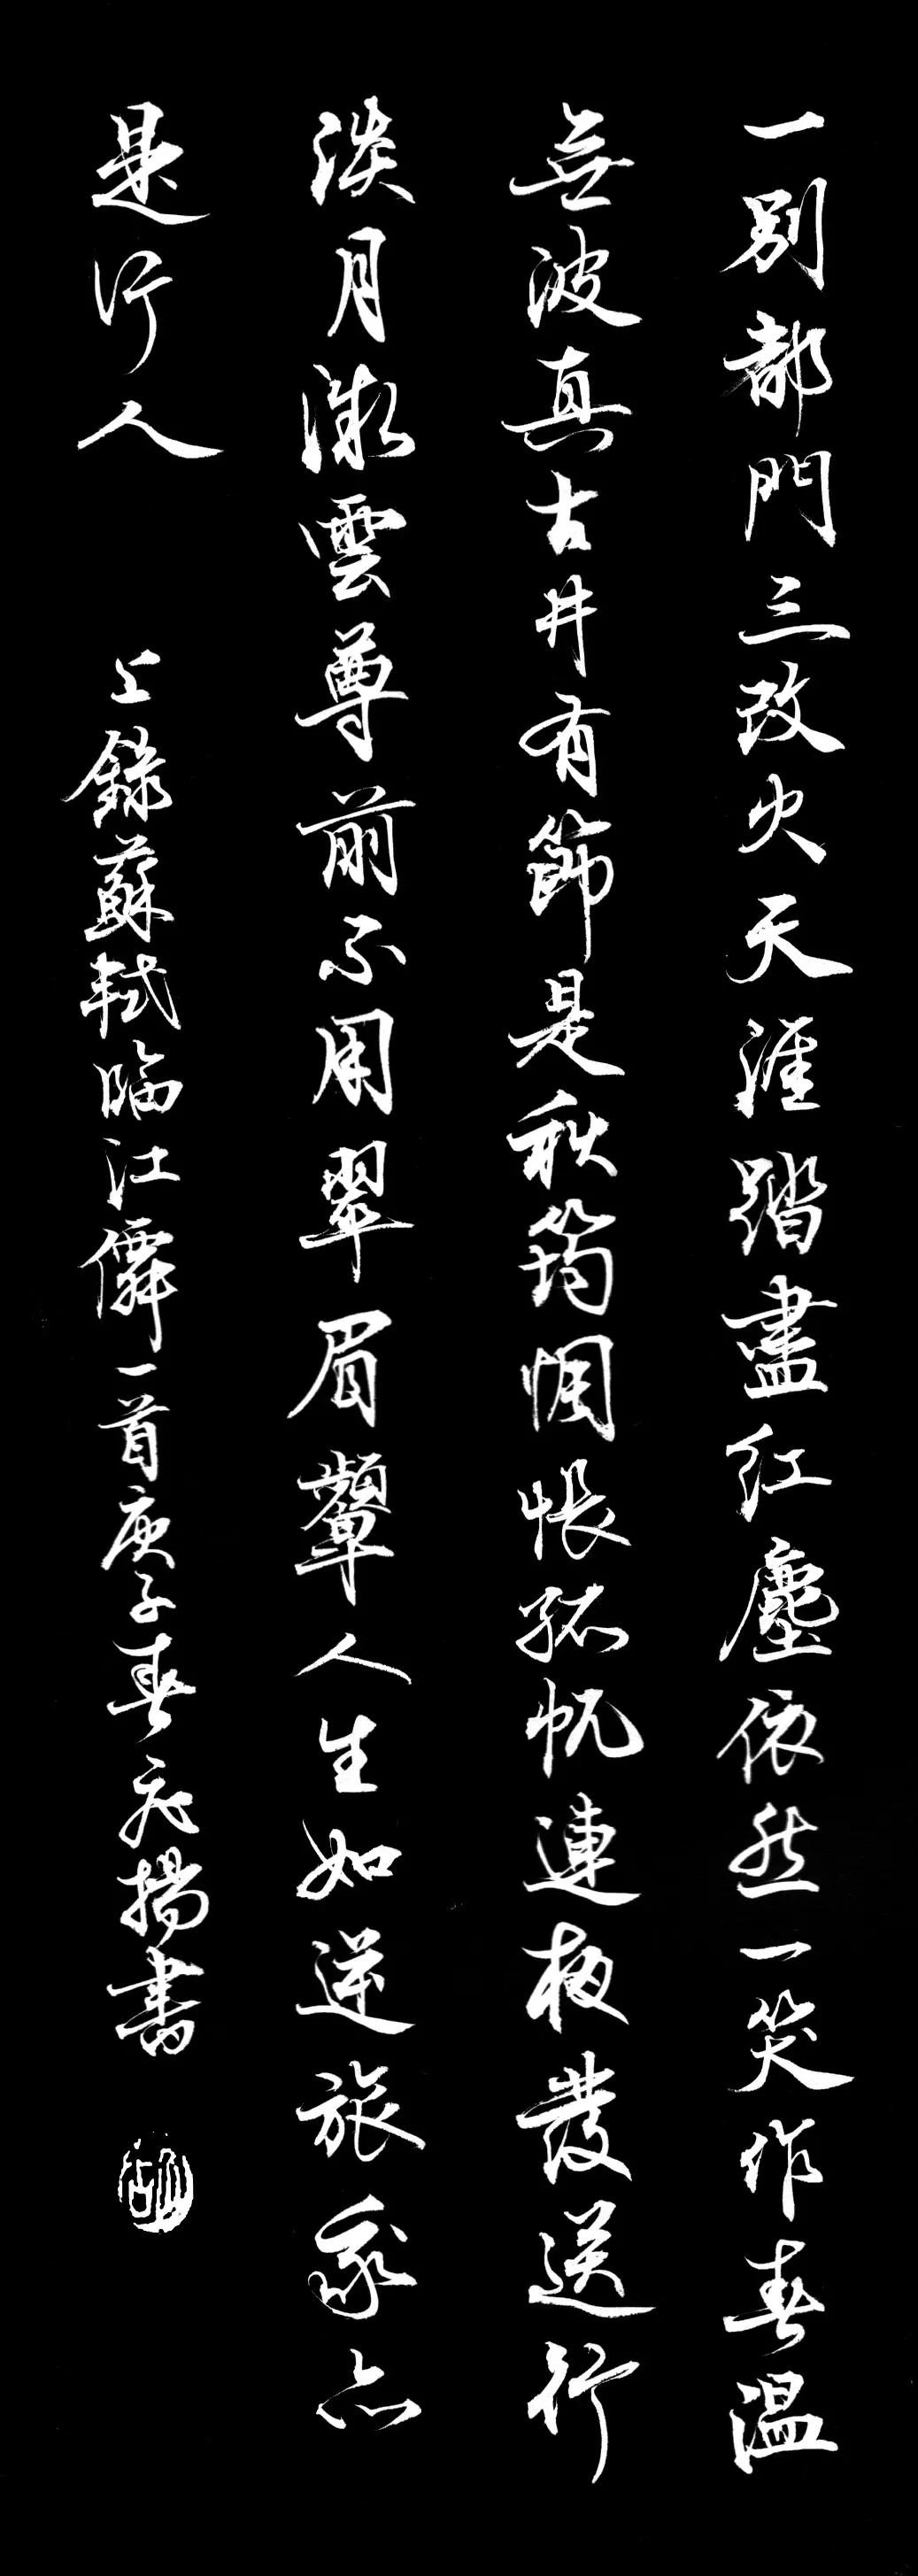 一別都門三改火天涯踏盡紅塵依然一笑作春溫
無波真古井有節是秋筠惆悵孤帆連夜發送行
淡月微雲尊前不用翠眉顰人生如逆旅我亦
是行人 上錄蘇軾臨江僊一首庚子春揚書